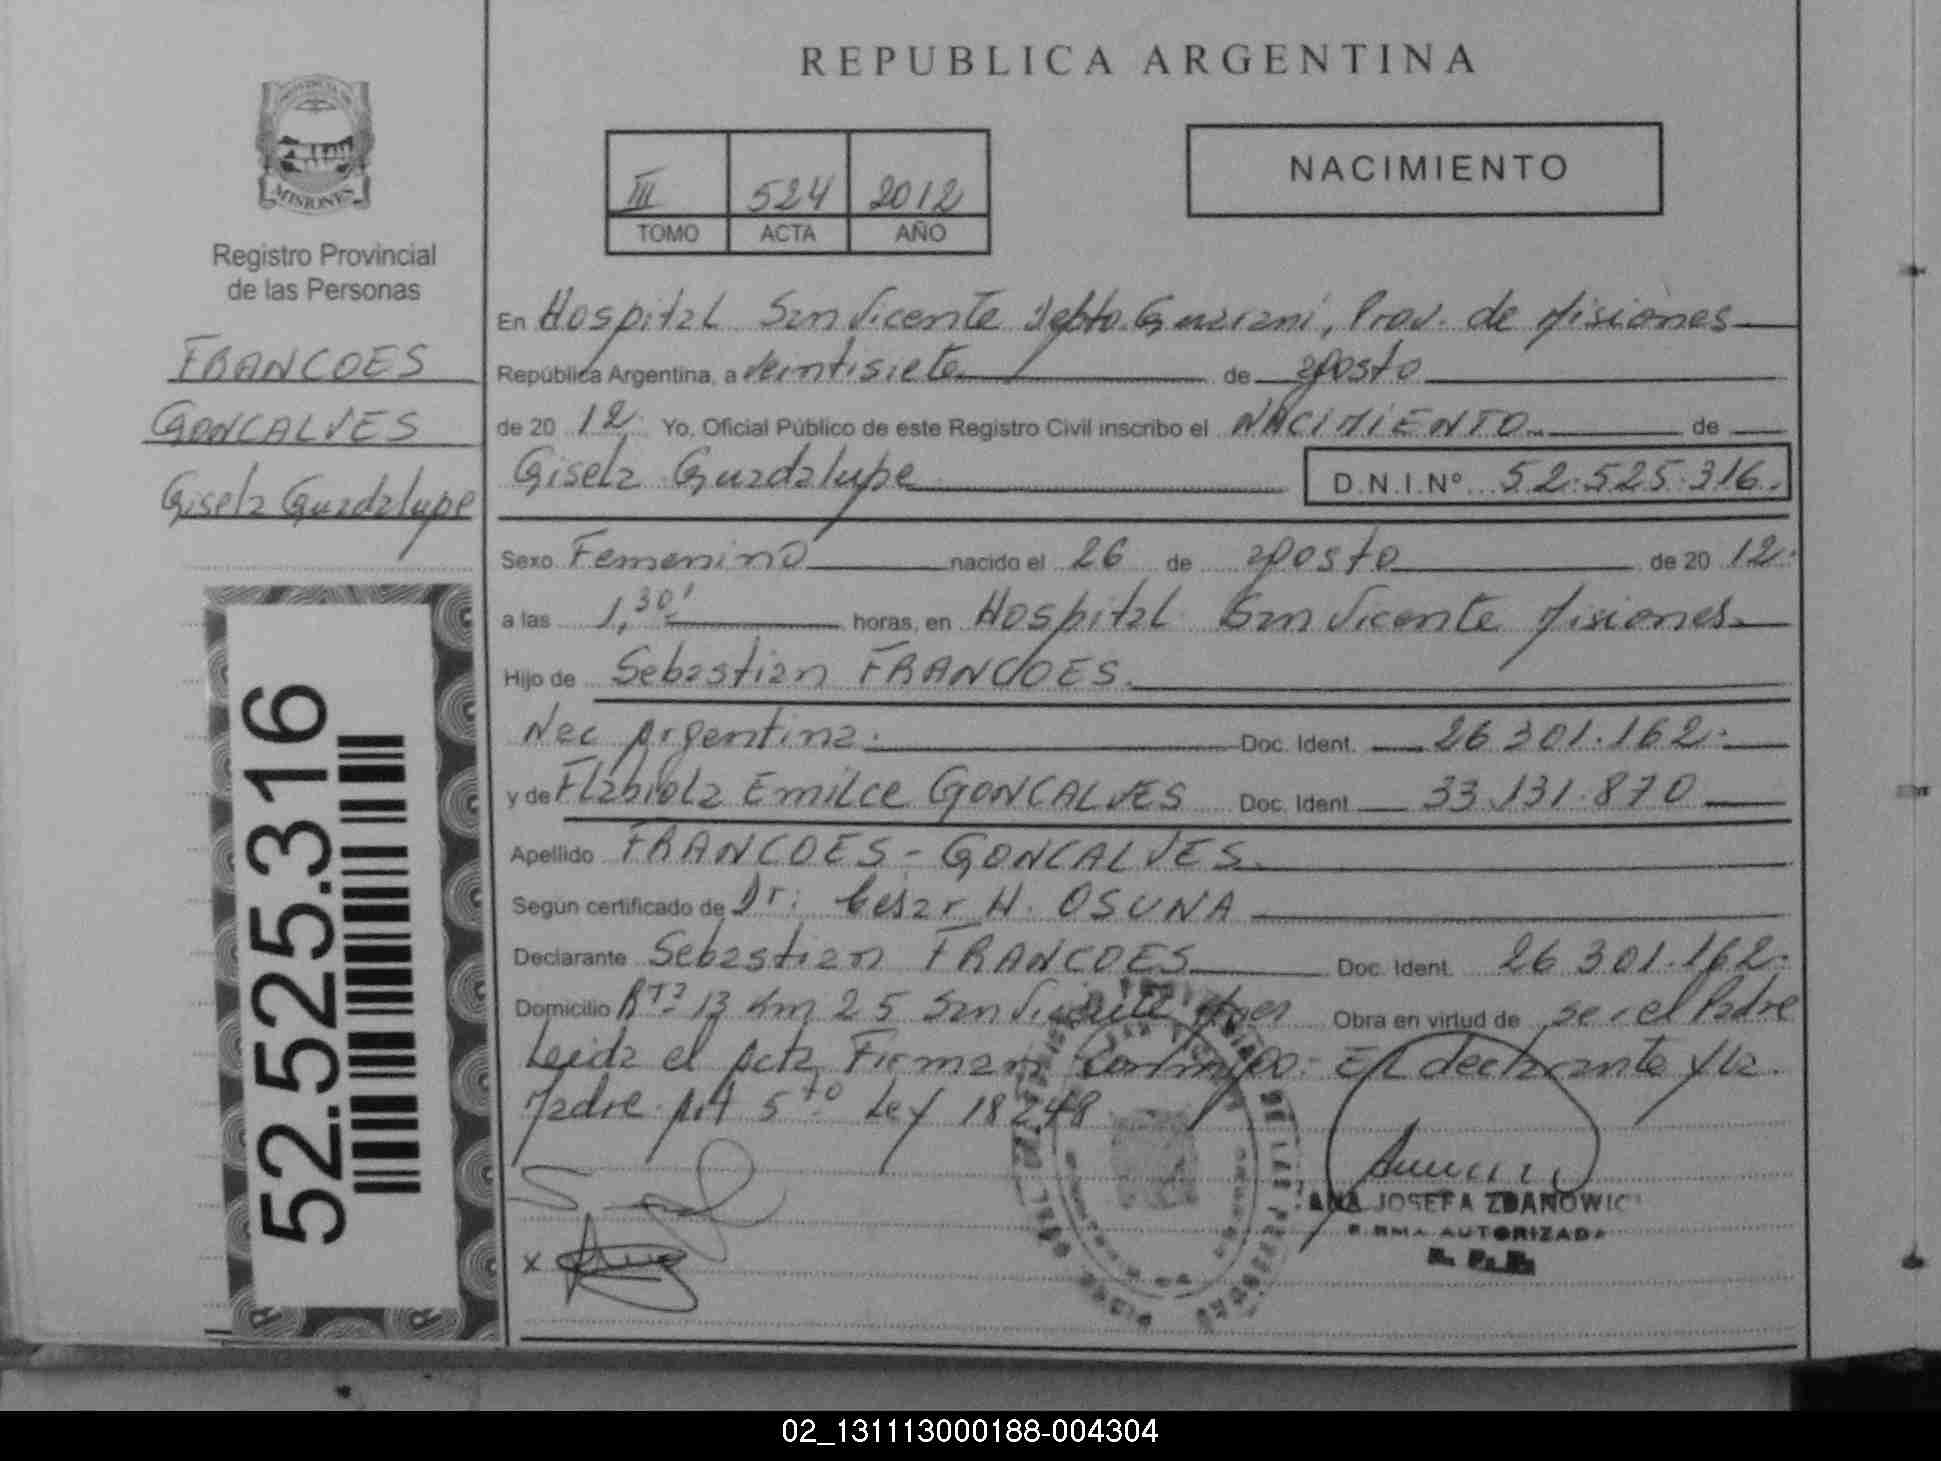 REPUBLICA ARGENTINA
NACIMIENTO
III 524 2012
TOMO ACTA AÑO
MISIONES
Registro Provincial
de las Personas
FRANCOES
GONCALVES
Gisela Guadalupe
52.525.316
En Hospital San Vicente Depto. Guarani, Prov. de Misiones
República Argentina, a veintisiete de agosto
de 20 12 Yo, Oficial Público de este Registro Civil inscribo el NACIMIENTO de
Gisela Guadalupe D.N.I.Nº 52.525.316.
Sexo Femenino nacido el 26 de agosto de 20 12.
a las 1,30' horas, en Hospital San Vicente Misiones
Hijo de Sebastian FRANCOES.
Nac Argentina. Doc. Ident. 26 301.162.
y de Flabiola Emilce GONCALVES Doc. Ident 33.131.870
Apellido FRANCOES - GONCALVES.
Segun certificado de Dr: Cesar H. OSUNA
Declarante Sebastian FRANCOES Doc. Ident. 26 301.162.
Domicilio Rta 13 Km 25 San Vicente Mnes Obra en virtud de ser el Padre
Leida el Acta Firman conmigo: El declarante y la
Madre. Art 5to Ley 18248
ANA JOSEFA ZDANOWIC
FIRMA AUTORIZADA
R. P. P.
02_131113000188-004304